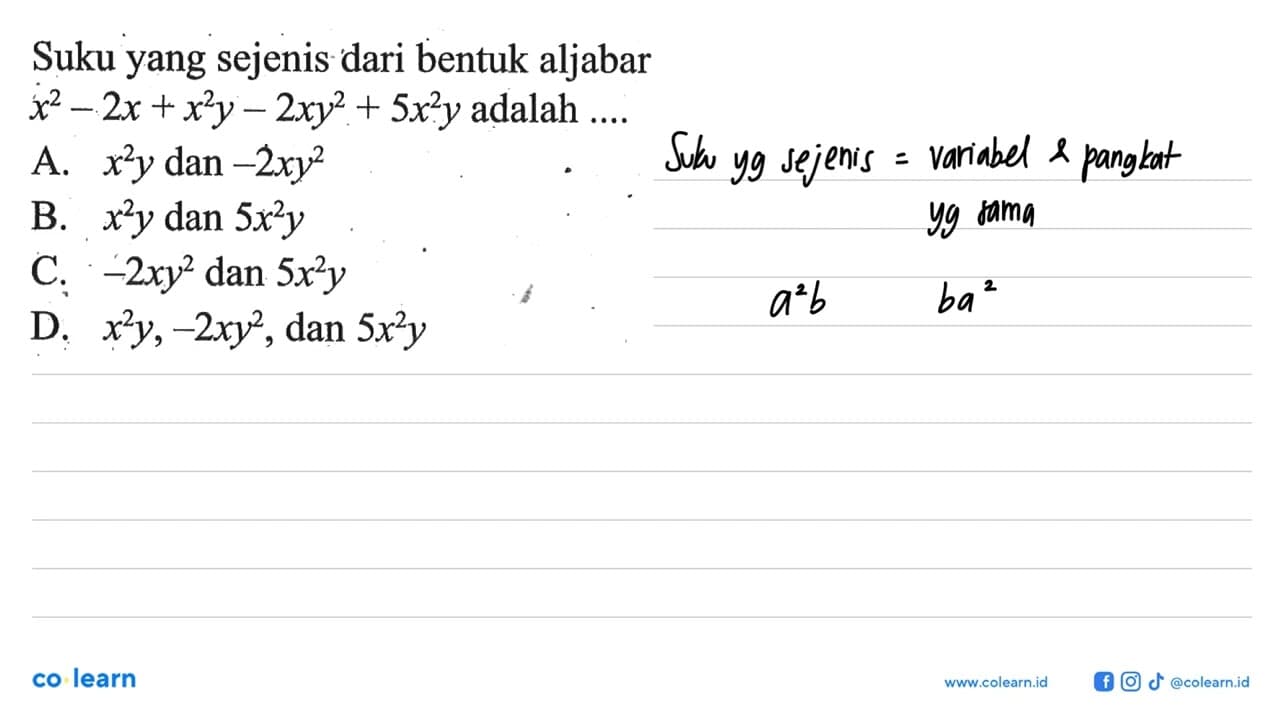 Suku yang sejenis dari bentuk aljabar
x² – 2x + x²y – 2xy² + 5x²y adalah ....
A. x²y dan –2xy²
B. x²y dan 5x²y
C. –2xy² dan 5x²y
D. x²y, –2xy², dan 5x²y
Suku yg sejenis = variabel & pangkat
yg sama
a²b ba²
co learn
www.colearn.id @colearn.id